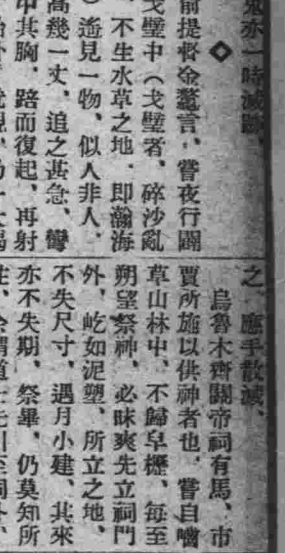 鬼亦一時滅跡、
◆
提督金鼇言、嘗夜行闢
戈壁中(戈壁者、碎沙亂
、不生水草之地、即瀚海
)遙見一物、似人非人、
高幾一丈、追之甚急、彎
中其胸、踣而復起、再射
之、應手散滅、
烏魯木齊關帝祠有馬、市
賈所施以供神者也、嘗自嚙
草山林中、不歸皁櫪、每至
朔望祭神、必昧爽先立祠門
外、屹如泥塑、所立之地、
不失尺寸、遇月小建、其來
亦不失期、祭畢、仍莫知所
往、余謂道士先引至祠外、